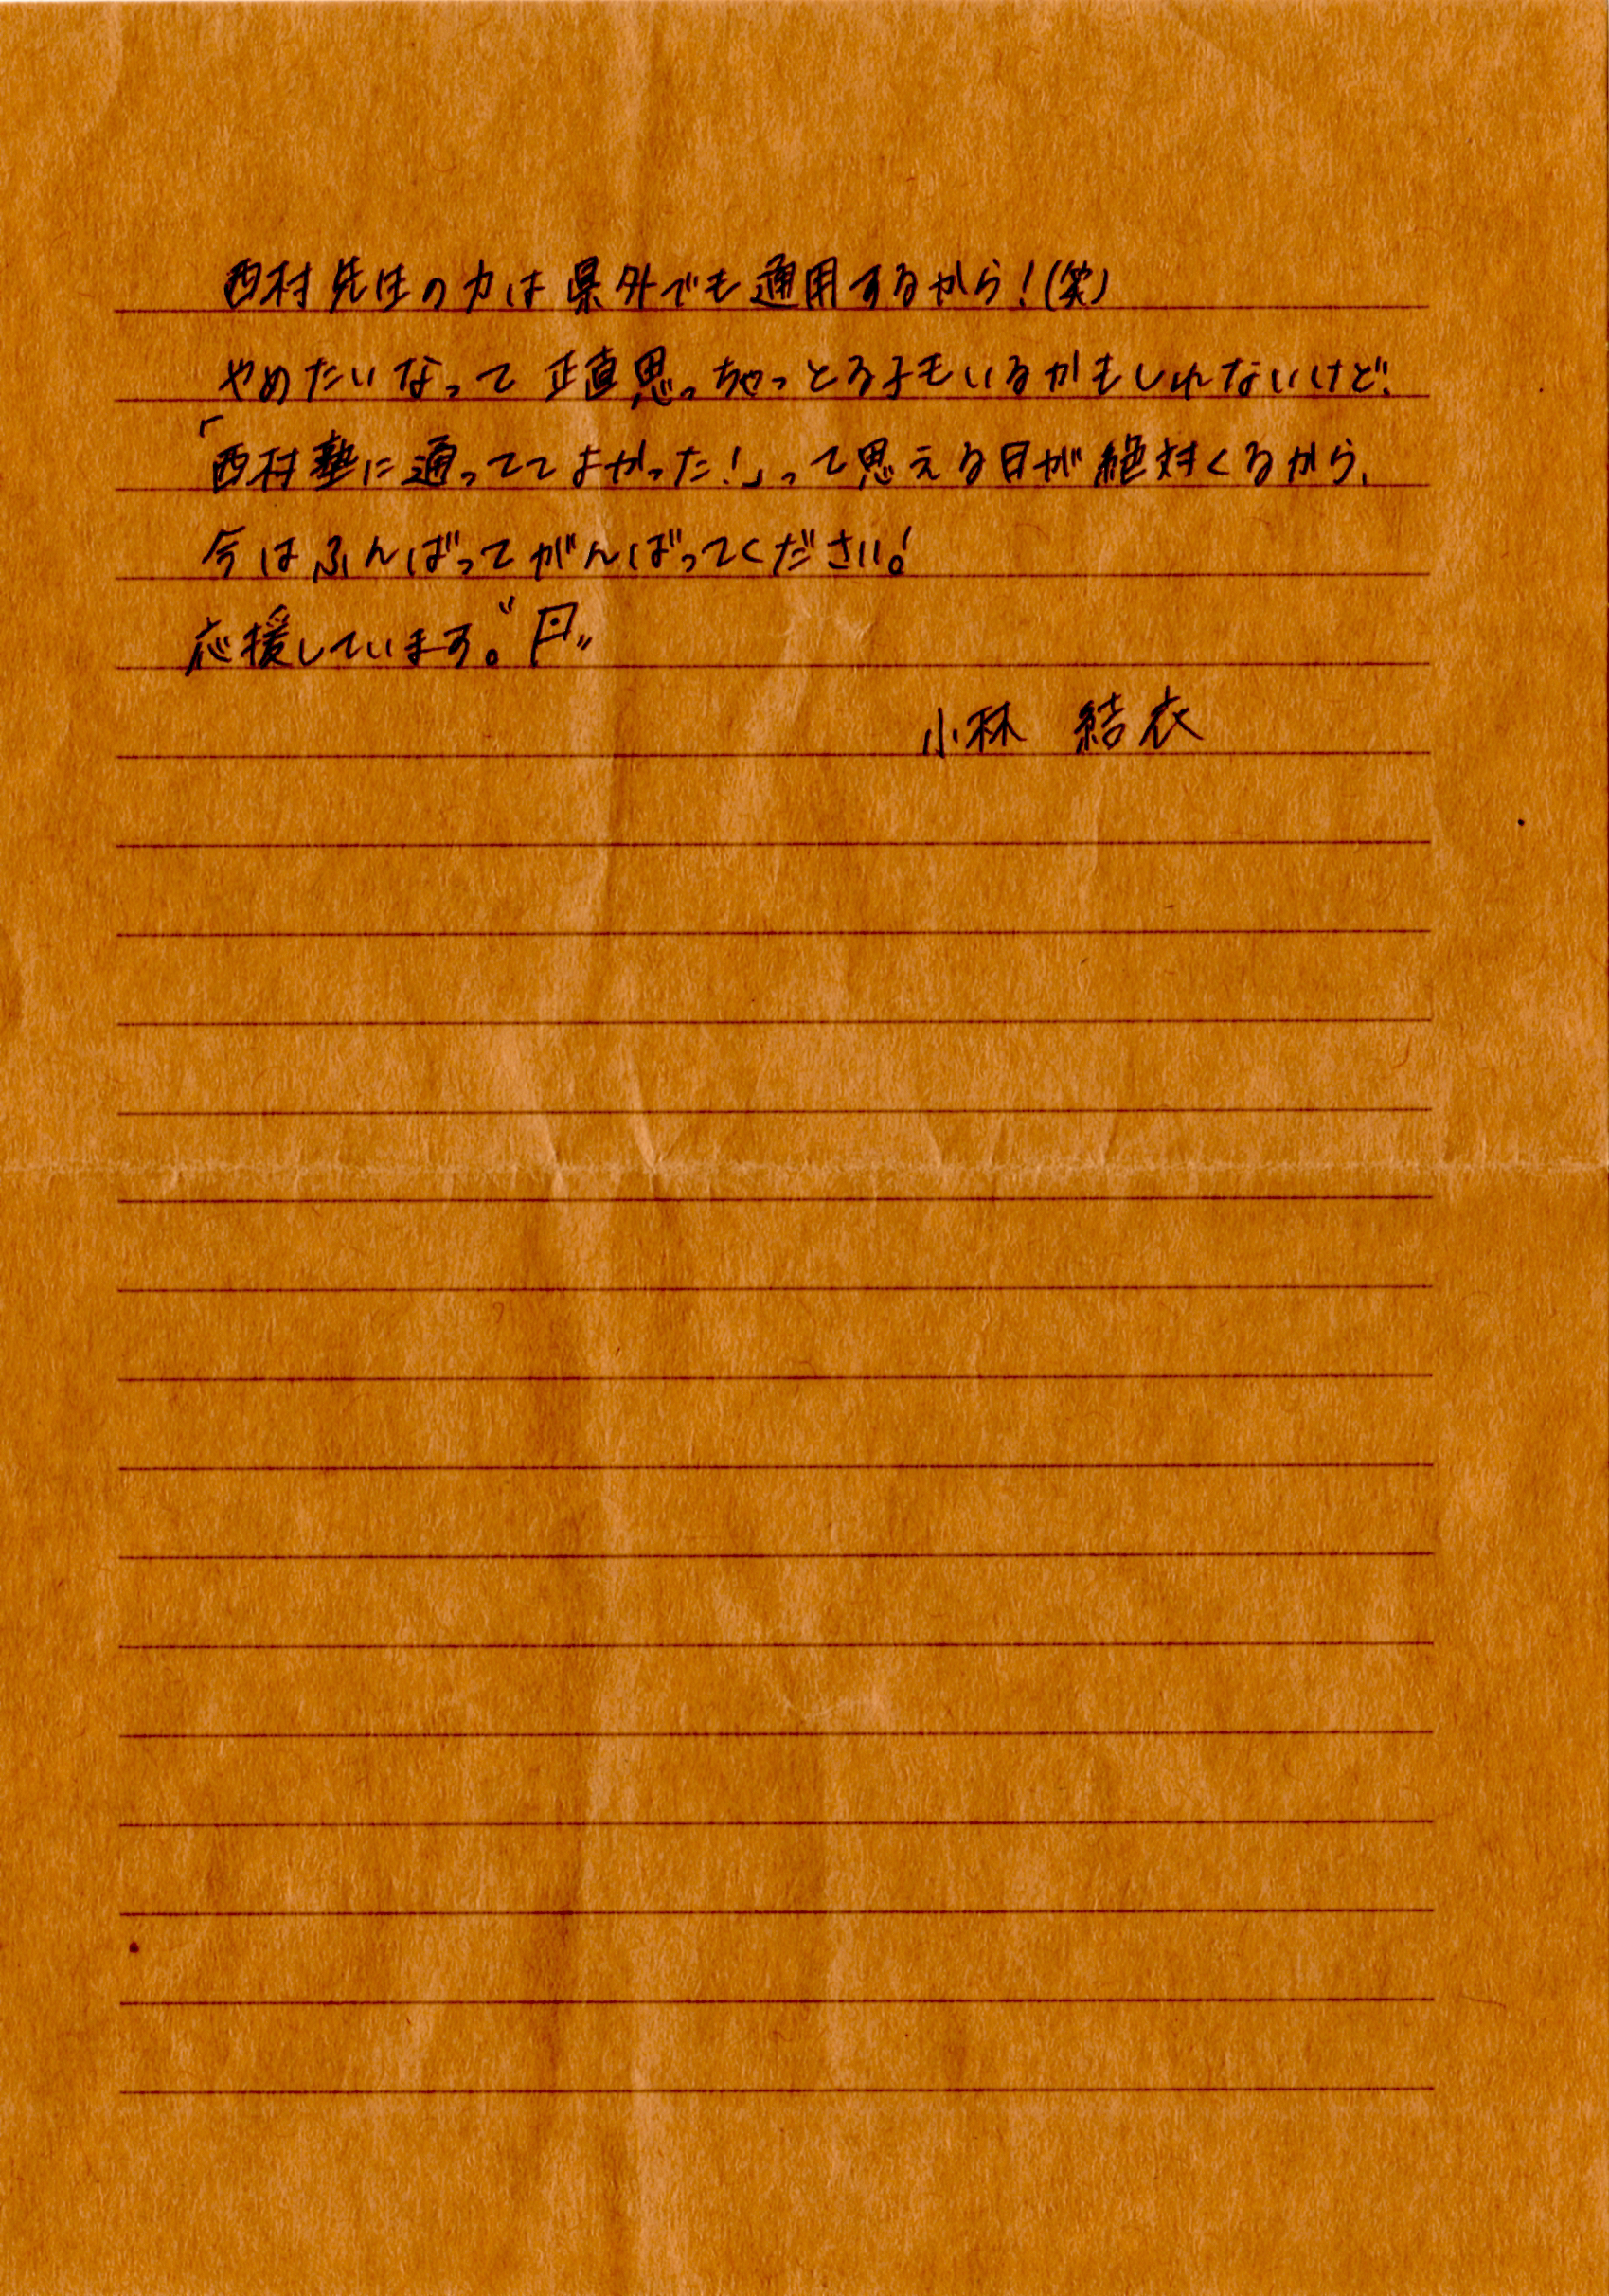 西村先生の力は県外でも通用するから！(笑)
やめたいなって正直思っちゃっとる子もいるかもしれないけど、
「西村塾に通っててよかった！」って思える日が絶対くるから、
今はふんばってがんばってください！
応援しています。
小林 結衣